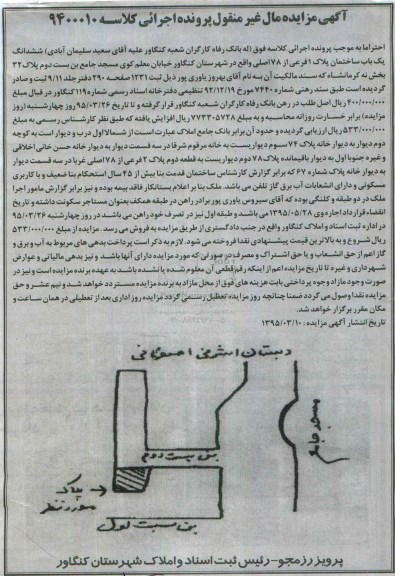 آگهی مزایده مال غیر منقول پرونده اجرائی کلاسه ۹۴۰۰۰۱۰
احتراما به موجب پرونده اجرائی کلاسه فوق (له بانک رفاه کارگران شعبه کنگاور علیه آقای سعید سلیمان آبادی) ششدانگ
یک باب ساختمان پلاک ۱ فرعی از ۷۸ اصلی واقع در شهرستان کنگاور خیابان معلم کوی مسجد جامع بن بست دوم پلاک ۳۲
بخش نه کرمانشاه که سند مالکیت آن به نام آقای بهروز یاوری پور ذیل ثبت ۱۲۳۱ صفحه ۲۹۰ دفتر جلد ۹/۱۱ ثبت و صادر
گردیده است طبق سند رهنی شماره ۷۴۴۰ مورخ ۹۲/۱۲/۱۹ تنظیمی دفترخانه اسناد رسمی شماره ۱۱۹ کنگاور در قبال مبلغ
۴۰۰/۰۰۰/۰۰۰ ریال اصل طلب در رهن بانک رفاه کارگران شعبه کنگاور قرار گرفته و تا تاریخ ۹۵/۰۳/۲۶ روز چهارشنبه (روز
مزایده) برابر خسارت روزانه محاسبه و به مبلغ ۷۷۳۳۰۵۷۲۸ ریال افزایش یافته که طبق نظر کارشناس رسمی به مبلغ
۵۳۳/۰۰۰/۰۰۰ ریال ارزیابی گردیده و حدود آن برابر بانک جامع املاک عبارت است از شمالا اول درب و دیوار است به کوچه
دوم دیوار به دیوار خانه پلاک ۷۴ سوم دیواریست به خانه مرقوم شرقا در سه قسمت دیوار به دیوار خانه حسن خانی اخلاقی
و غیره جنوبا اول به دیوار باقیمانده پلاک ۷۸ دوم دیواریست به قطعه دوم پلاک ۲ فرعی از ۷۸ اصلی غربا در سه قسمت دیوار
به دیوار خانه پلاک شماره ۶۷ که برابر گزارش کارشناس ساختمان قدمت بنا بیش از ۴۵ سال استحکام بنا ضعیف و با کاربری
مسکونی و دارای انشعابات آب برق گاز تلفن می باشد. ملک بنا بر اعلام بستانکار فاقد بیمه بوده و نیز برابر گزارش مامور اجرا
ملک در دو طبقه و کلنگی بوده که آقای سیروس یاوری پور برادر راهن در طبقه همکف بعنوان مستاجر سکونت داشته و تاریخ
انقضاء قرارداد اجاره وی ۱۳۹۵/۰۵/۲۸ می باشد و طبقه اول نیز در تصرف خود راهن می باشد در روز چهارشنبه ۹۵/۰۳/۲۶
در اداره ثبت اسناد و املاک کنگاور واقع در جنب دادگستری از طریق مزایده به فروش می رسد. مزایده از مبلغ ۵۳۳/۰۰۰/۰۰۰
ریال شروع و به بالاترین قیمت پیشنهادی نقدا فروخته می شود. لازم به ذکر است پرداخت بدهی های مربوط به آب و برق و
گاز اعم از حق انشعاب و یا حق اشتراک و مصرف در صورتی که مورد مزایده دارای آنها باشد و نیز بدهی مالیاتی و عوارض
شهرداری و غیره تا تاریخ مزایده اعم از اینکه رقم قطعی آن معلوم شده یا نشده باشد به عهده برنده مزایده است و نیز در
صورت وجود مازاد وجوه پرداختی بابت هزینه های فوق از محل مازاد به برنده مزایده مسترد خواهد شد و نیم عشر و حق
مزایده نقدا وصول می گردد ضمنا چنانچه روز مزایده تعطیل رسمی گردد مزایده روز اداری بعد از تعطیلی در همان ساعت و
مکان مقرر برگزار خواهد شد.
تاریخ انتشار آگهی مزایده: ۱۳۹۵/۰۳/۱۰
دبستان اشرفی اصفهانی
مسجد جامع
بن بست دوم
پلاک
مورد نظر
بن بست اول
پرویز رزمجو-رئیس ثبت اسناد و املاک شهرستان کنگاور